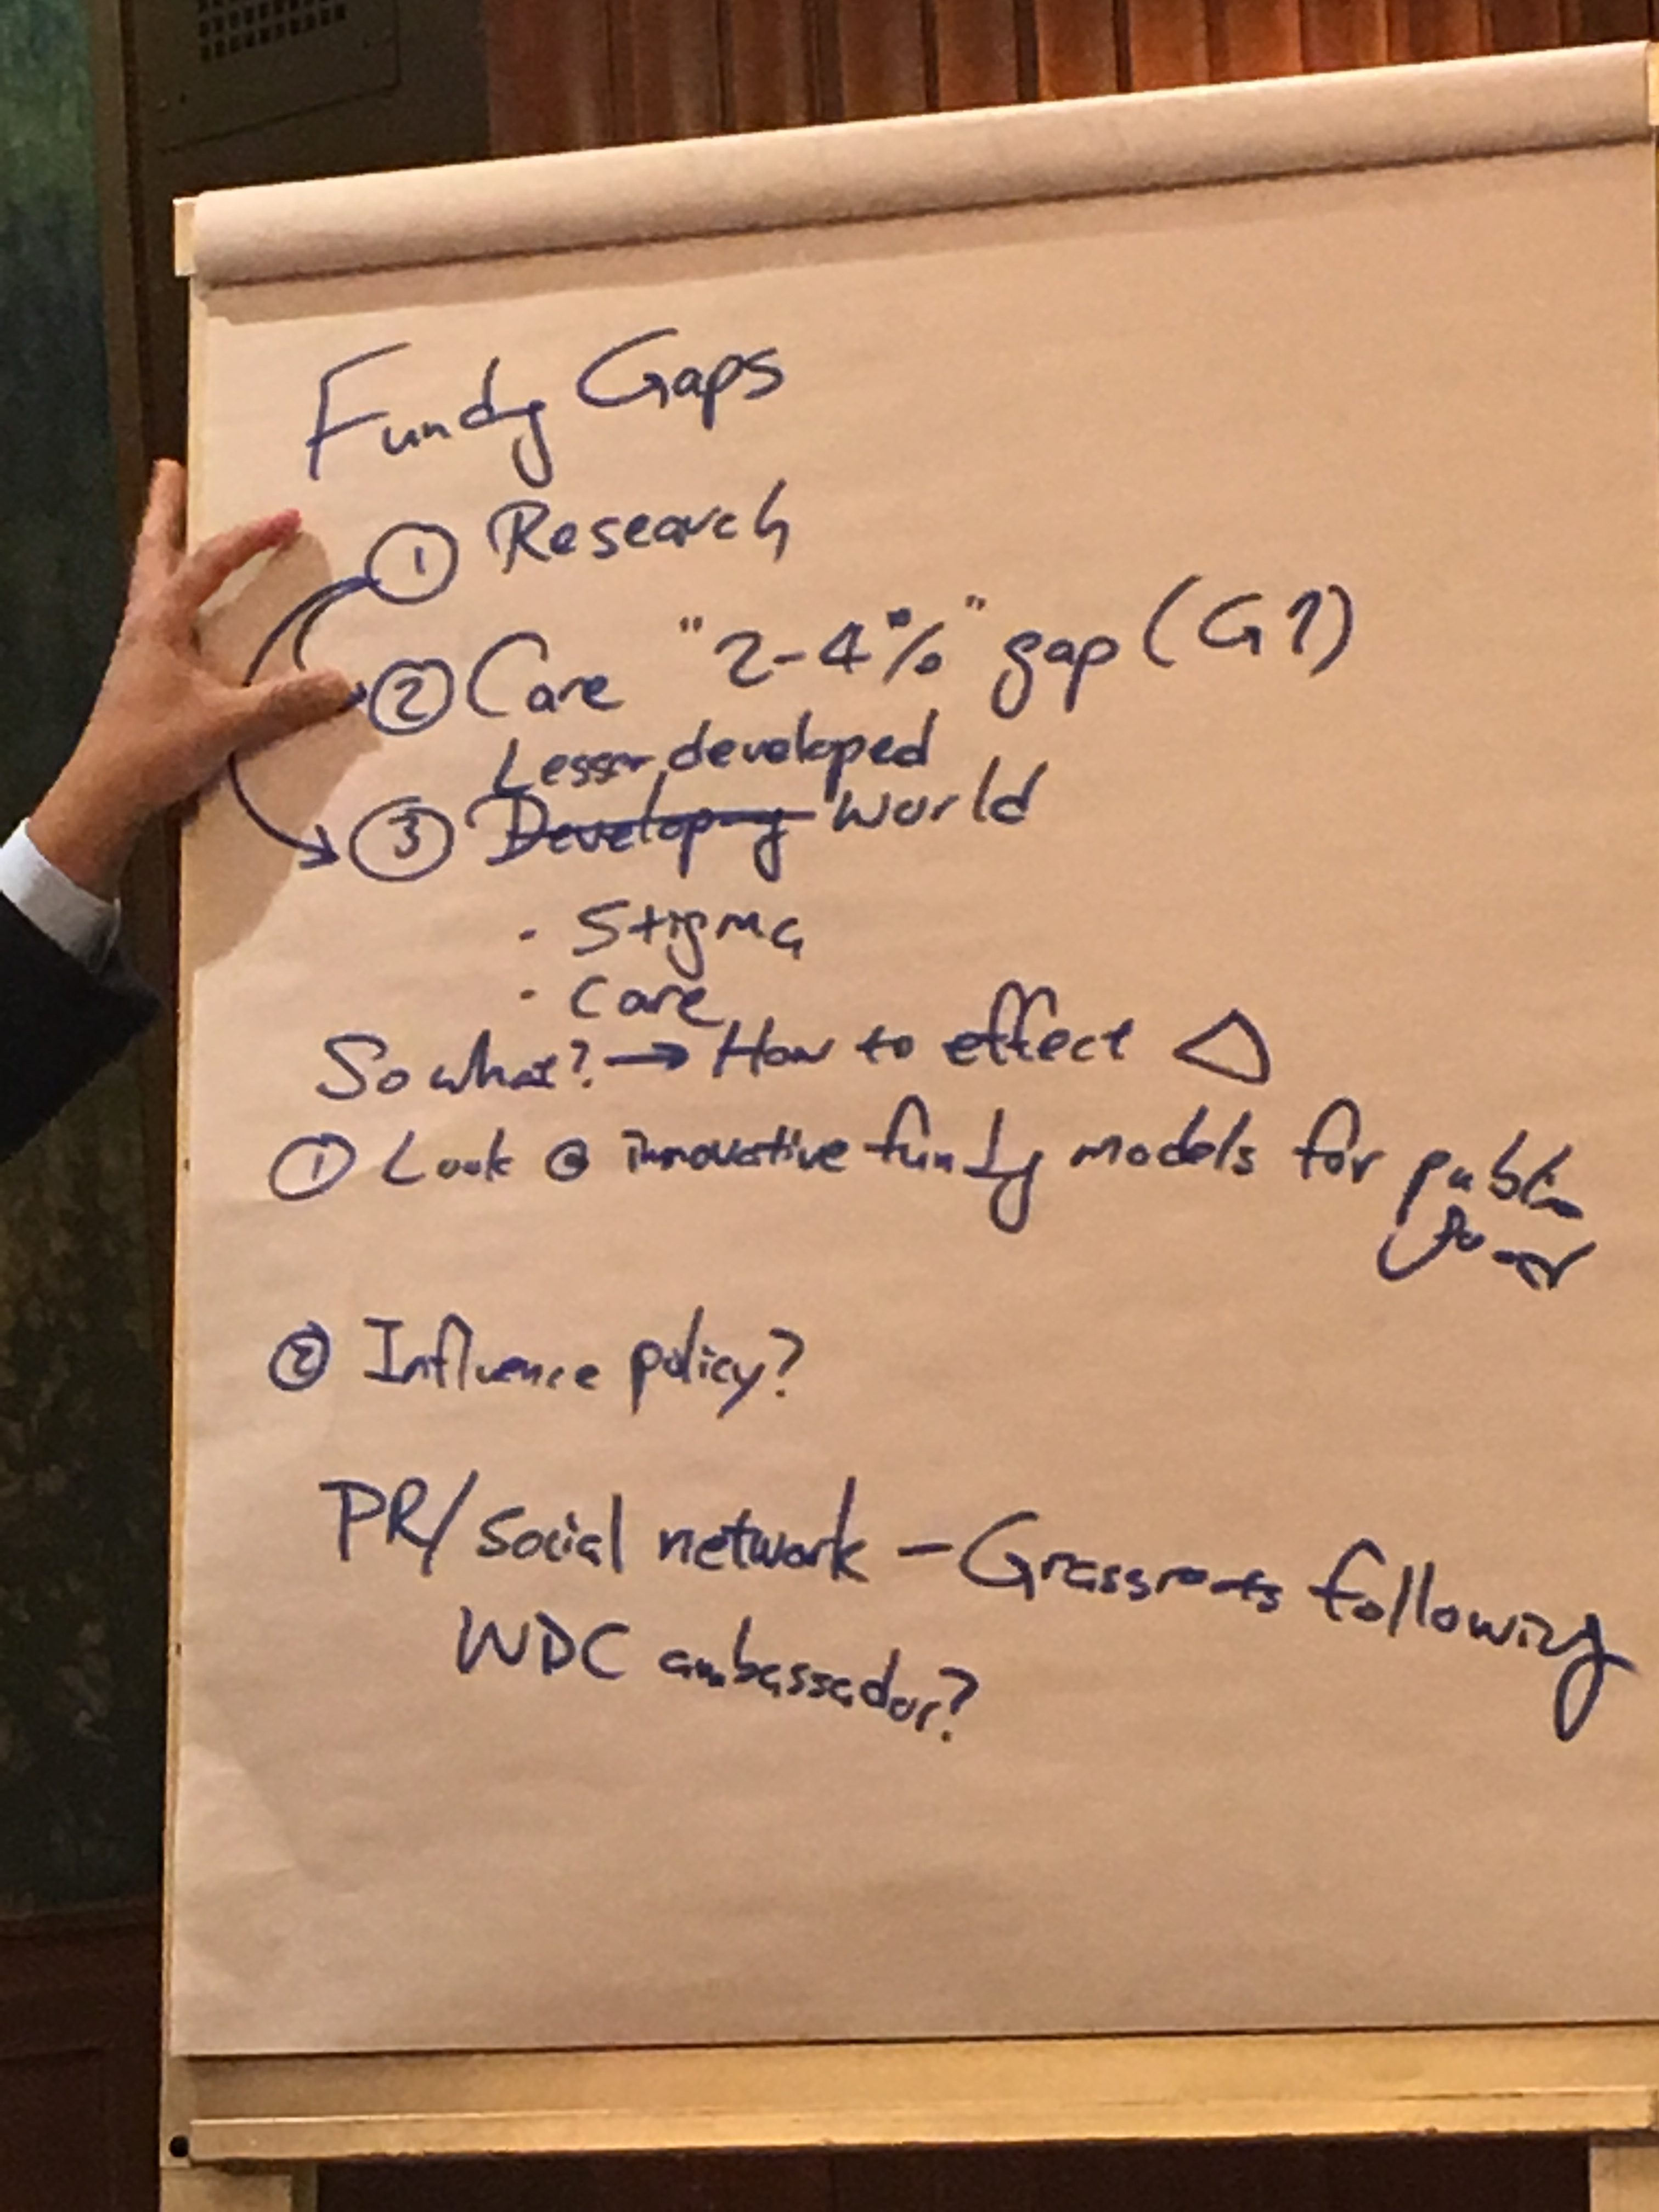 Funding Gaps
① Research
② Care "2-4%" gap (G7)
Lesser developed
③ Developing World
- Stigma
- Care
So what? → How to effect △
① Look @ innovative funding models for public
② Influence policy?
PR/social network - Grassroots following
WDC ambassador?